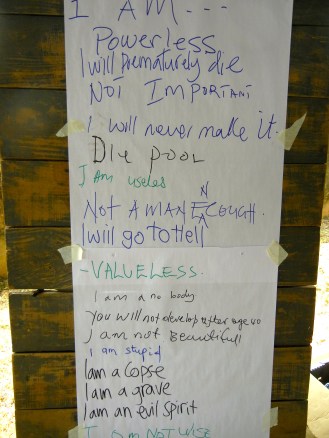 I AM ---
Powerless
I will prematurely die
NOT IMPORTANT
I will never make it.
Die pool
I Am useles
NOT A MAN ENOUGH.
I will go to Hell
- VALUELESS.
I am a no body
You will not develop after age 40
I am not Beautifull
I am stupid
I am a copse
I am a grave
I am an evil spirit
I am NOT WISE